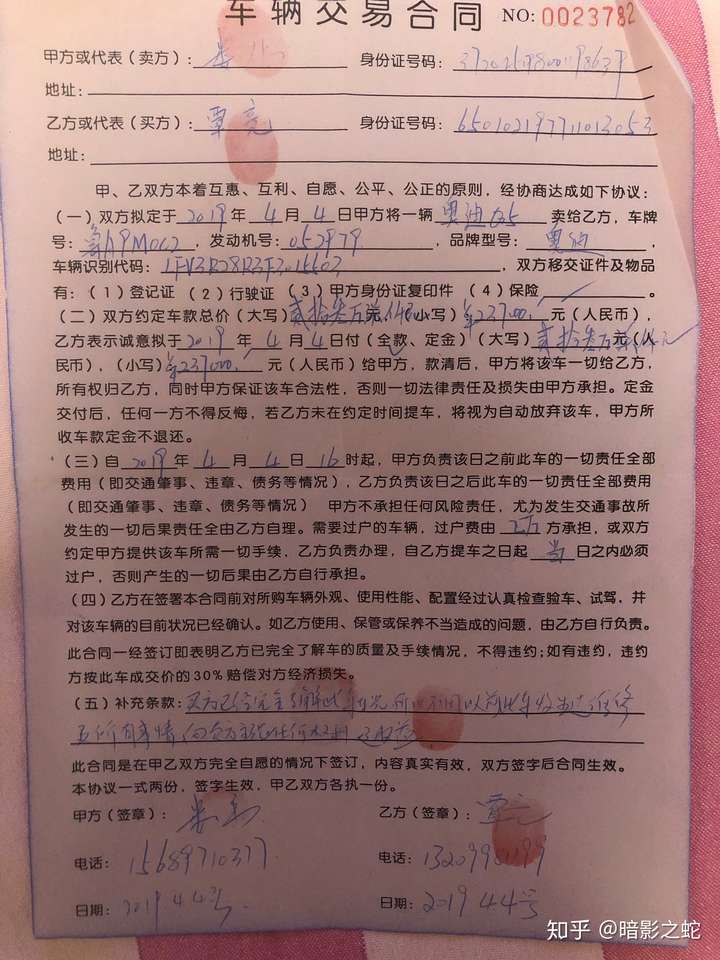 车辆交易合同 NO: 0023782
甲方或代表(卖方): 身份证号码:
地址:
乙方或代表(买方): 覃亮 身份证号码: 650102197711013053
地址:
甲、乙双方本着互惠、互利、自愿、公平、公正的原则，经协商达成如下协议:
(一)双方拟定于2019年4月4日甲方将一辆奥迪Q5卖给乙方，车牌
号: 鲁A9M0C2，发动机号: 052979，品牌型号: 奥迪，
车辆识别代码: ，双方移交证件及物品
有:(1)登记证 (2)行驶证 (3)甲方身份证复印件 (4)保险 。
(二)双方约定车款总价(大写)贰拾叁万 (小写)¥237000.元(人民币)，
乙方表示诚意拟于2019年4月4日付(全款、定金)(大写)贰拾叁万 元(人
民币)，(小写)¥237000.元(人民币)给甲方，款清后，甲方将该车一切给乙方，
所有权归乙方，同时甲方保证该车合法性，否则一切法律责任及损失由甲方承担。定金
交付后，任何一方不得反悔，若乙方未在约定时间提车，将视为自动放弃该车，甲方所
收车款定金不退还。
(三)自2019年4月4日16时起，甲方负责该日之前此车的一切责任全部
费用(即交通肇事、违章、债务等情况)，乙方负责该日之后此车的一切责任全部费用
(即交通肇事、违章、债务等情况) 甲方不承担任何风险责任，尤为发生交通事故所
发生的一切后果责任全由乙方自理。需要过户的车辆，过户费由 方承担，或双方
约定甲方提供该车所需一切手续，乙方负责办理，自乙方提车之日起 当 日之内必须
过户，否则产生的一切后果由乙方自行承担。
(四)乙方在签署本合同前对所购车辆外观、使用性能、配置经过认真检查验车、试驾，并
对该车辆的目前状况已经确认。如乙方使用、保管或保养不当造成的问题，由乙方自行负责。
此合同一经签订即表明乙方已完全了解车的质量及手续情况，不得违约;如有违约，违约
方按此车成交价的30%赔偿对方经济损失。
(五)补充条款: 买方已经完全了解此车状况
此合同是在甲乙双方完全自愿的情况下签订，内容真实有效，双方签字后合同生效。
本协议一式两份，签字生效，甲乙双方各执一份。
甲方(签章): 乙方(签章): 覃亮
电话: 15689710377 电话:
日期: 2019 4 4号 日期: 2019 4 4号
知乎 @暗影之蛇